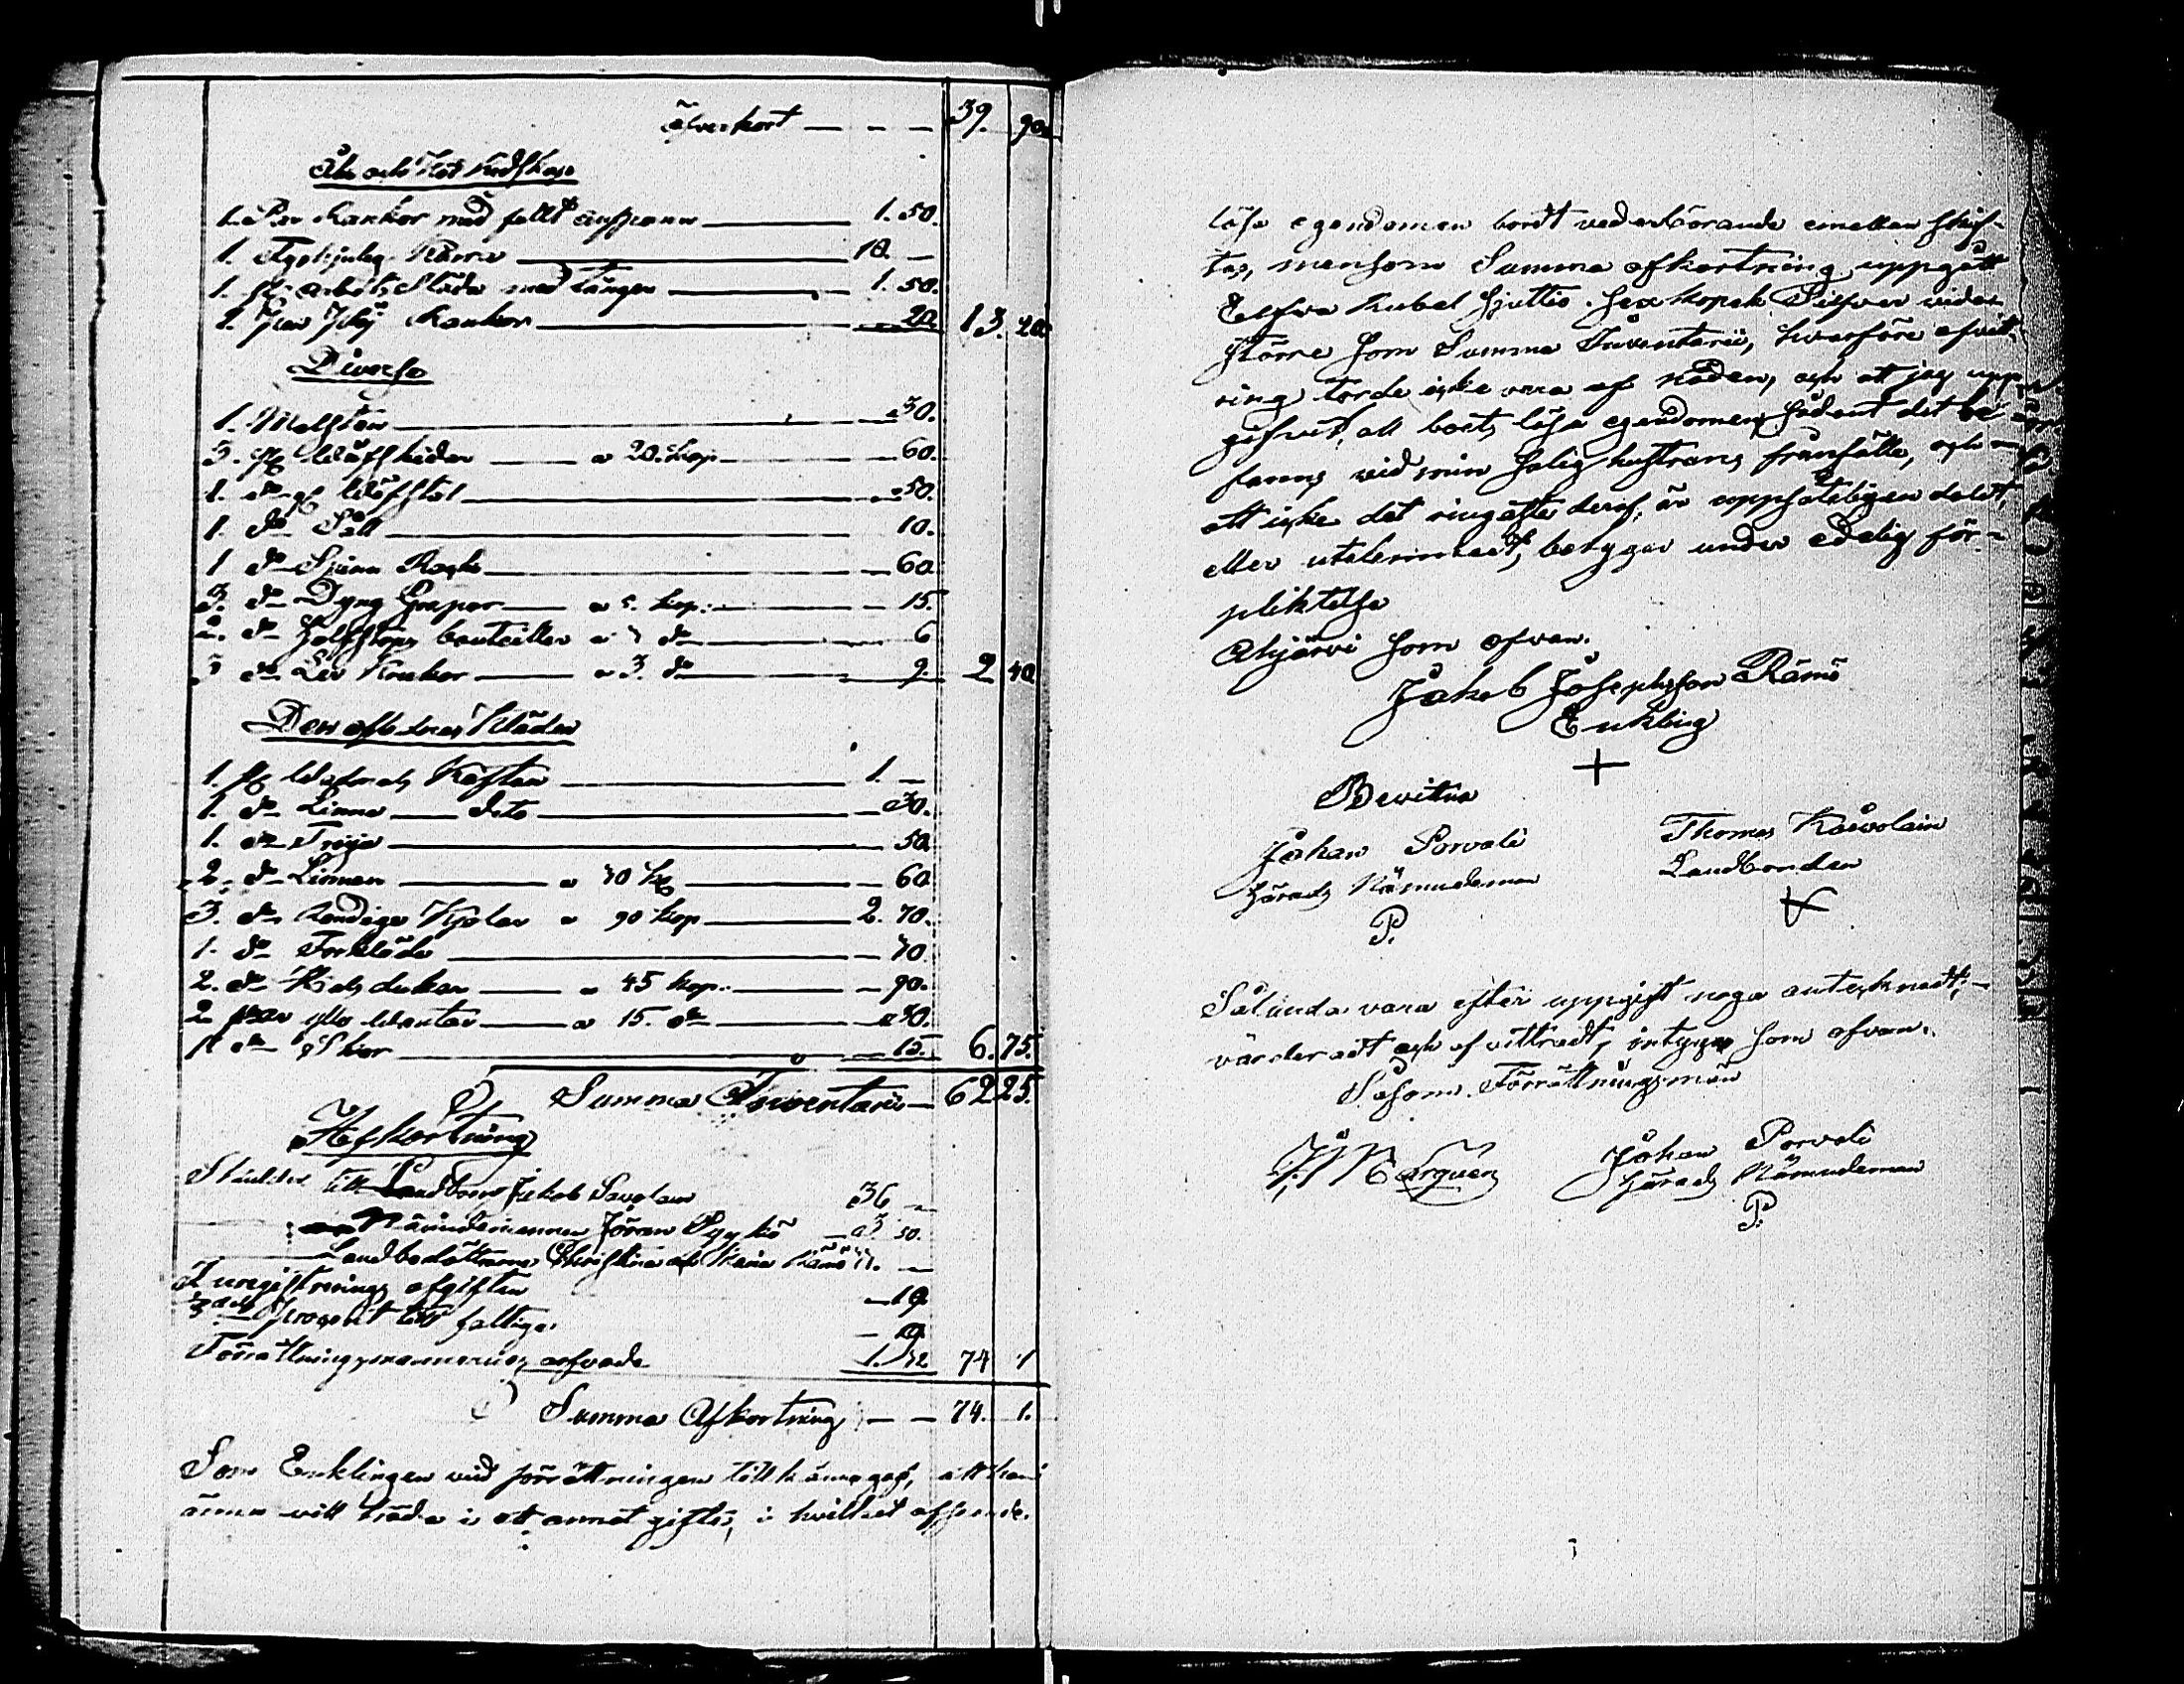 öfverkort — — — 39. 90.
Åk och Kör Redskap
1. Par Kankor med fullt anspann — 1. 50.
1. Tvåhjulig Kärra — 10. —
1. st arbets Släda med tänger — 1. 50.
1. Kankor — 20. 13. 20.
Diverse
1. — 30.
3. st Wäfskedar — a 20. kop — 60.
1. d:o Wäfstol — 50.
1. d:o Såll — 10.
1 d:o Spinn Rock — 60.
3. d:o Dyng Grepar — a 5. kop: — 15.
2. d:o Halfstops bouteiller a 3 d:o — 6
3 d:o Ler Krukor — a 3. d:o — 9. 2 40
Den aflednas Kläder
1. st Wadmals Kaftan — 1. —
1. d:o Linne — dito — 30.
1. d:o Tröja — 50.
2. d:o Linnen — a 30 kop — 60
3. d:o Randiga Kjolar a 90 kop — 2. 70.
1. d:o Förkläde — 10.
2. d:o dukar — a 45 kop: — 90.
2 par ylle Wantar — a 15. d:o — 30.
1 d:o Skor — 15. 6. 75.
Summa Inventarii — 62 25.
Afkortning
Skulder till Landbon Jakob Savolain 36 —
Nämndemannen Jöran Pyykö 3 50.
Landbodöttrarna Christina och Maria Rämö —
Inregistrerings afgiften — 19.
procent till fattiga — 
Förrättningsmannens arfvode 1. 32 74 1
Summa Afkortning — — 74. 1.
Som Enklingen vid förrättningen tillkännagaf, att han
ämnar träda i ett annat gifte, i hvilket afseende
lösa egendomen bordt vederbörande emellan skif-
tas, men som Summa afkortning uppgått
Elfva Rubel sjuttio sex kopek Silfver vida
större som Summa Inventarii, hvarföre afvit-
ring torde icke vara af nöden, och att jag upp-
gifvit all bort lösa egendomen sådant det be-
fanns vid min Salig hustrus frånfälle, och
att icke det ringaste deraf, är uppsåteligen doldt,
eller utelemnadt, betygar under edelig för-
pliktelse
Ahijärvi som ofvan.
Jakob Josephsson Rämö
Enkling
+
Bevitna
Johan Porvali
Härads Nämndeman
P.
Thomas
Landbonden
Sålunda vara efter uppgift noga antecknadt,
värderadt och afvittradt, intyga som ofvan.
Såsom Förrättningsmän
Johan Porvali
Härads Nämndeman
P.